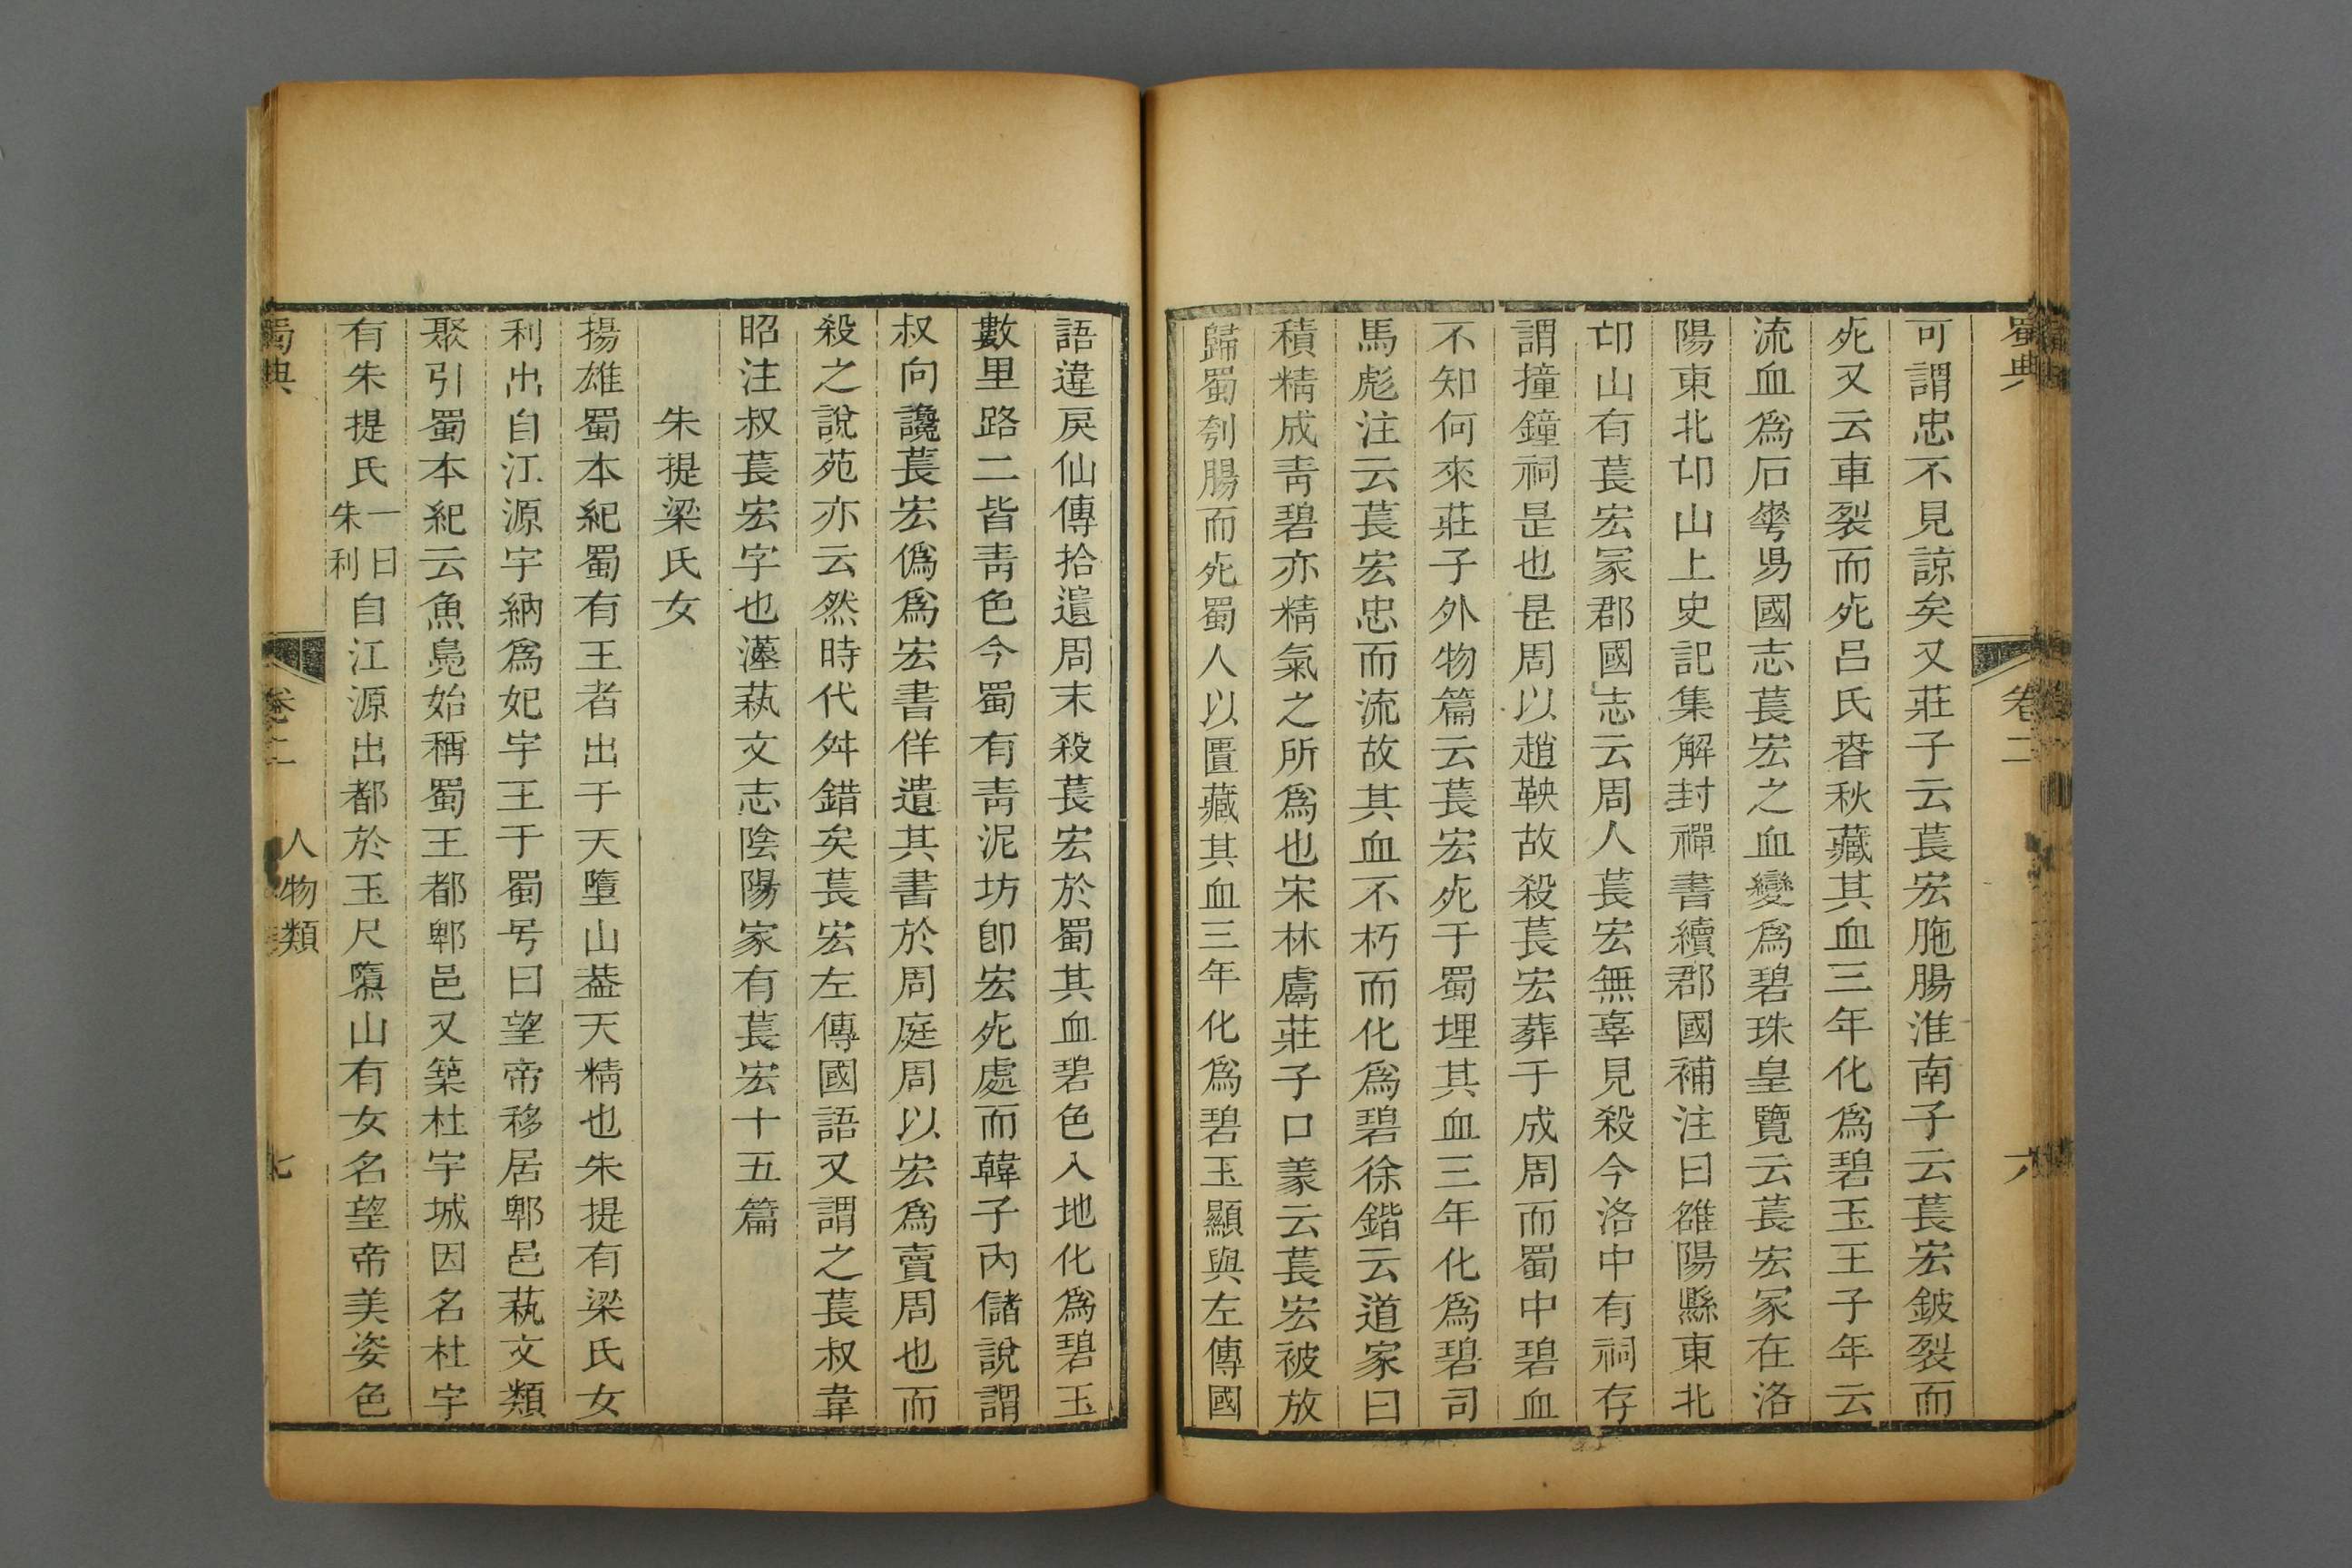 蜀典
卷二
六
可謂忠不見諒矣又莊子云萇宏胣腸淮南子云萇宏鈹裂而
死又云車裂而死呂氏春秋藏其血三年化爲碧玉王子年云
流血爲石郡國志萇宏之血變爲碧珠皇覽云萇宏冢在洛
陽東北邙山上史記集解封禪書續郡國補注曰雒陽縣東北
邙山有萇宏冢郡國志云周人萇宏無辜見殺今洛中有祠存
謂撞鐘祠是也昰周以趙鞅故殺萇宏葬于成周而蜀中碧血
不知何來莊子外物篇云萇宏死于蜀埋其血三年化爲碧司
馬彪注云萇宏忠而流故其血不朽而化爲碧徐鍇云道家曰
積精成靑碧亦精氣之所爲也宋林鬳莊子口義云萇宏被放
歸蜀刳腸而死蜀人以匱藏其血三年化爲碧玉顯與左傳國
語違戾仙傳拾遺周末殺萇宏於蜀其血碧色入地化爲碧玉
數里路二皆靑色今蜀有靑泥坊卽宏死處而韓子內儲說謂
叔向讒萇宏僞爲宏書佯遺其書於周庭周以宏爲賣周也而
殺之說苑亦云然時代舛錯矣萇宏左傳國語又謂之萇叔韋
昭注叔萇宏字也藝文志陰陽家有萇宏十五篇
朱提梁氏女
揚雄蜀本紀蜀有王者出于天墮山葢天精也朱提有梁氏女
利出自江源宇納爲妃宇王于蜀号曰望帝移居郫邑蓺文類
聚引蜀本紀云魚鳧始稱蜀王都郫邑又築杜宇城因名杜宇
有朱提氏一曰朱利自江源出都於玉尺隳山有女名望帝美姿色
蜀典
卷二
人物類
七